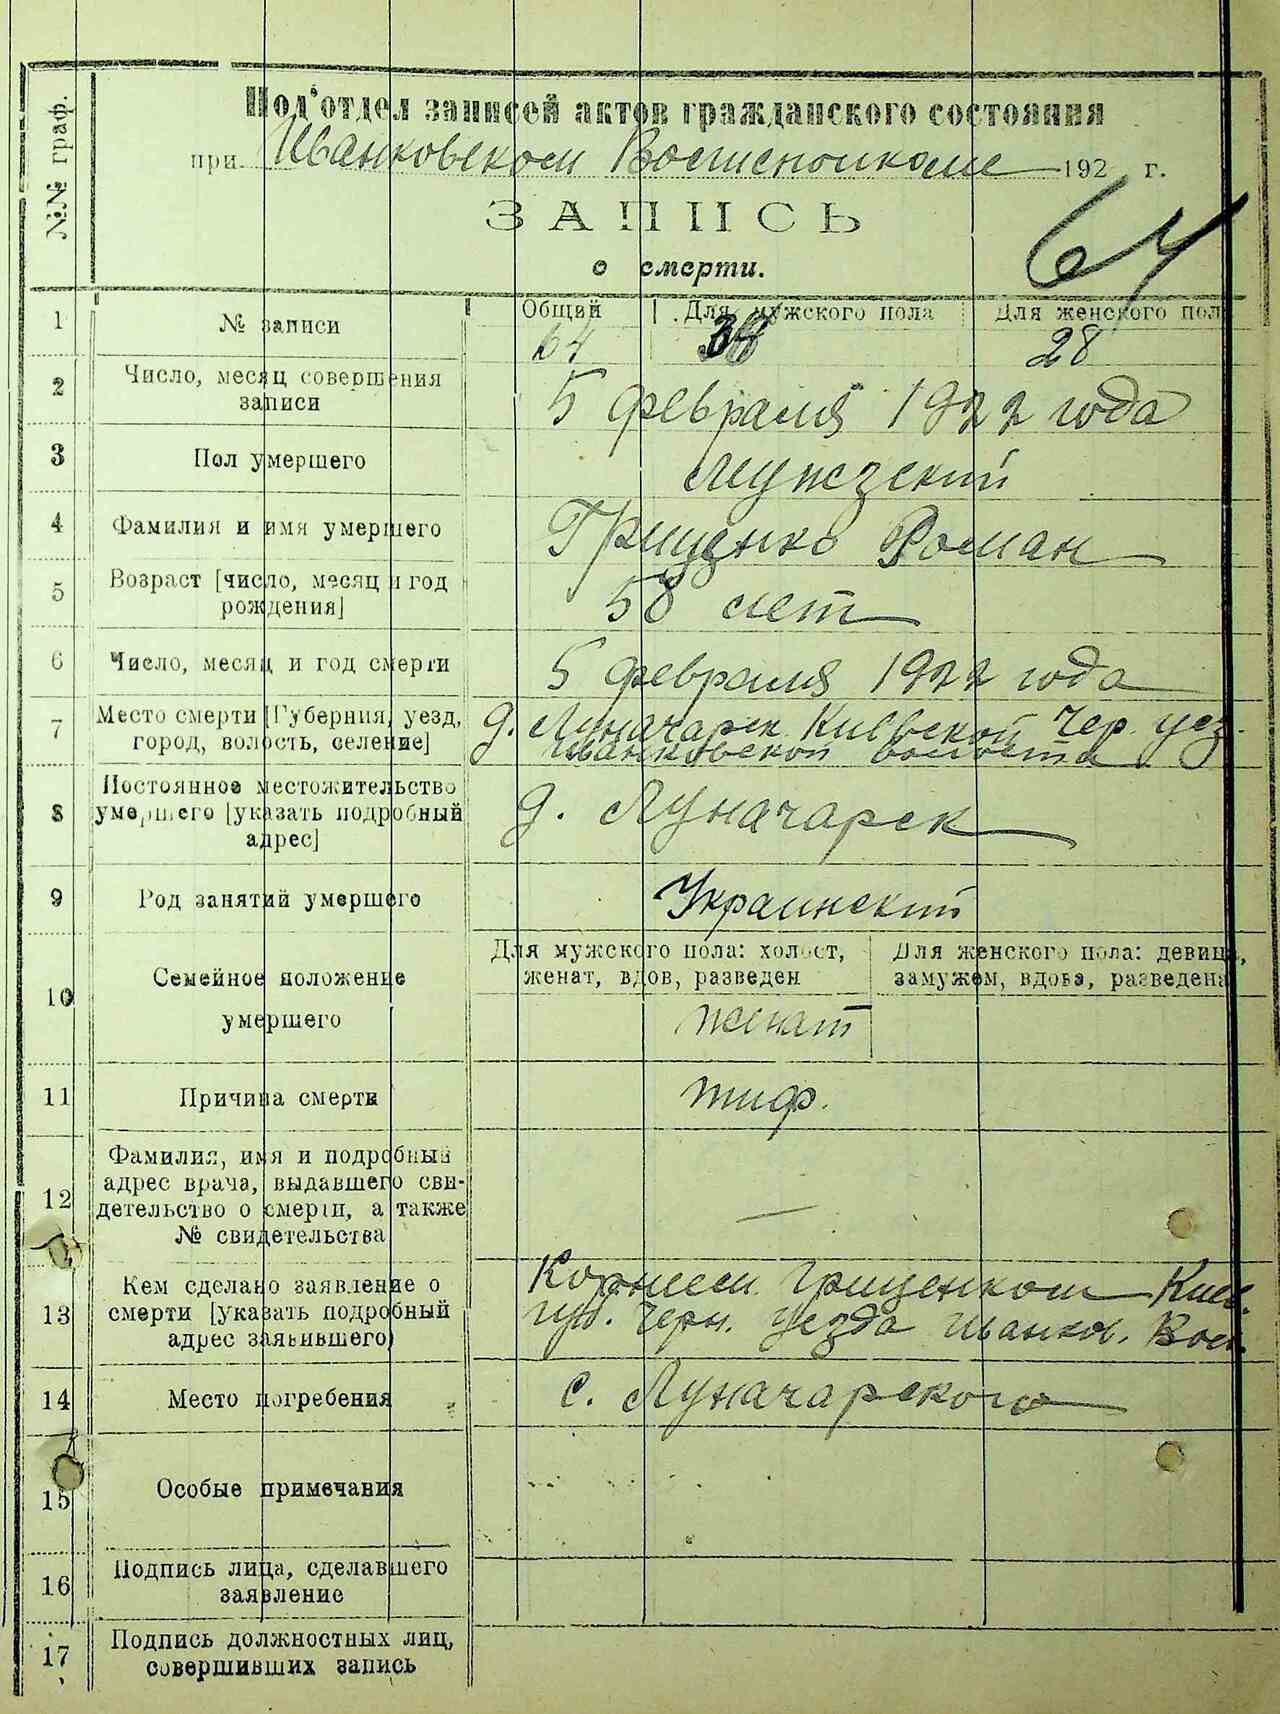 №№ граф.
Под'отдел записей актов гражданского состояния
при Иванковском Волисполкоме 192 г.
64
ЗАПИСЬ
о смерти.
1 № записи
Общий Для мужского пола Для женского пол
64 28
2 Число, месяц совершения
записи
5 февраля 1922 года
3 Пол умершего
Мужзский
4 Фамилия и имя умершего
Гриценко Роман
5 Возраст [число, месяц и год
рождения]
58 лет
6 Число, месяц и год смерти
5 февраля 1922 года
7 Место смерти [Губерния, уезд,
город, волость, селение]
д. Луначарск Киевской Чер. уез.
Иванковской волости
8 Постоянное местожительство
умершего [указать подробный
адрес]
д. Луначарск
9 Род занятий умершего
Украинский
10 Семейное положение
умершего
Для мужского пола: холост,
женат, вдов, разведен
Для женского пола: девица,
замужем, вдова, разведена
женат
11 Причина смерти
тиф.
12 Фамилия, имя и подробный
адрес врача, выдавшего сви-
детельство о смерти, а также
№ свидетельства
—
13 Кем сделано заявление о
смерти [указать подробный
адрес заявившего]
Корнеем Гриценком Киев.
губ. Черн. уезда Иванков. Вол.
14 Место погребения
с. Луначарского
15 Особые примечания
16 Подпись лица, сделавшего
заявление
17 Подпись должностных лиц,
совершивших запись